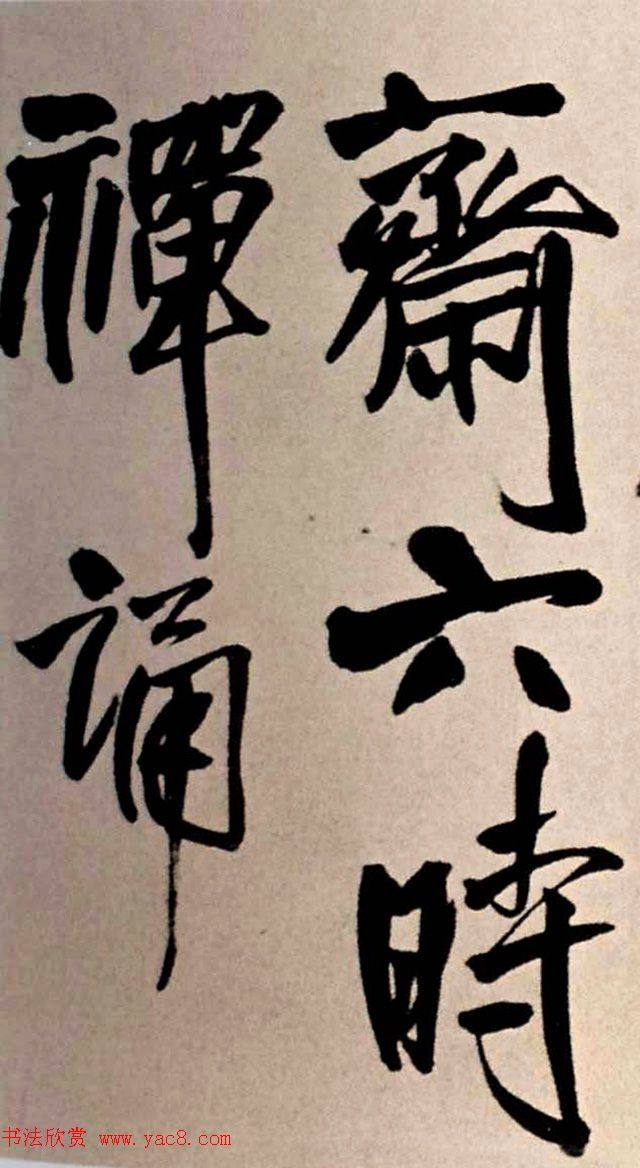 齋六時
禪誦
书法欣赏 www.yac8.com